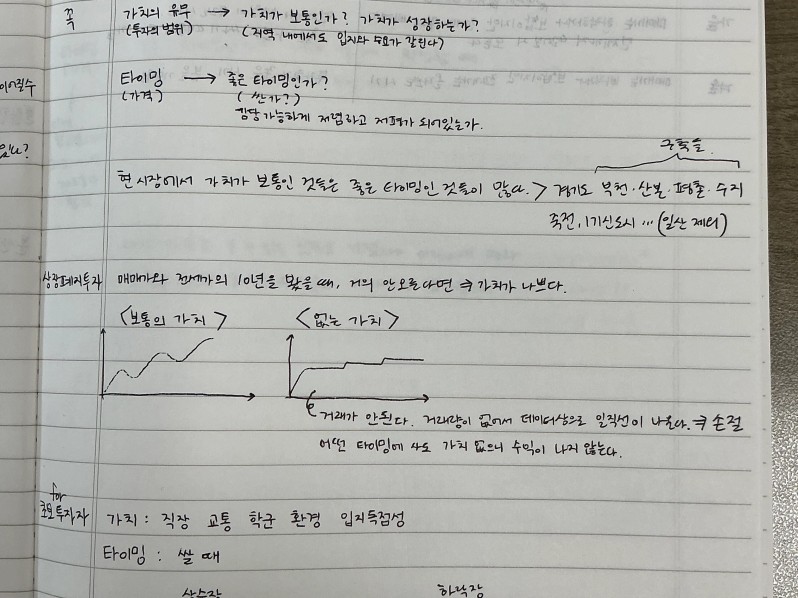 꼭
가치의 유무 → 가치가 보통인가? 가치가 성장하는가?
(투자의 범위) (지역 내에서도 입지와 수요가 갈린다)
이어질수
타이밍 → 좋은 타이밍인가?
(가격) (싼가?)
감당가능하게 저렴하고 저평가 되어있는가.
있나?
구축들.
현 시장에서 가치가 보통인 것들은 좋은 타이밍인 것들이 많다. > 경기도 부천·산본·평촌·수지
죽전, 1기신도시 ... (일산 제외)
매매가와 전세가의 10년을 봤을때, 거의 안오른다면 ⇒ 가치가 나쁘다.
<보통의 가치> <없는 가치>
거래가 안된다. 거래량이 없어서 데이터상으로 일직선이 나온다. ⇒ 손절
어떤 타이밍에 사도 가치 없으니 수익이 나지 않는다.
for
초보투자자
가치 : 직장 교통 학군 환경 입지독점성
타이밍 : 쌀 때
상승장 하락장